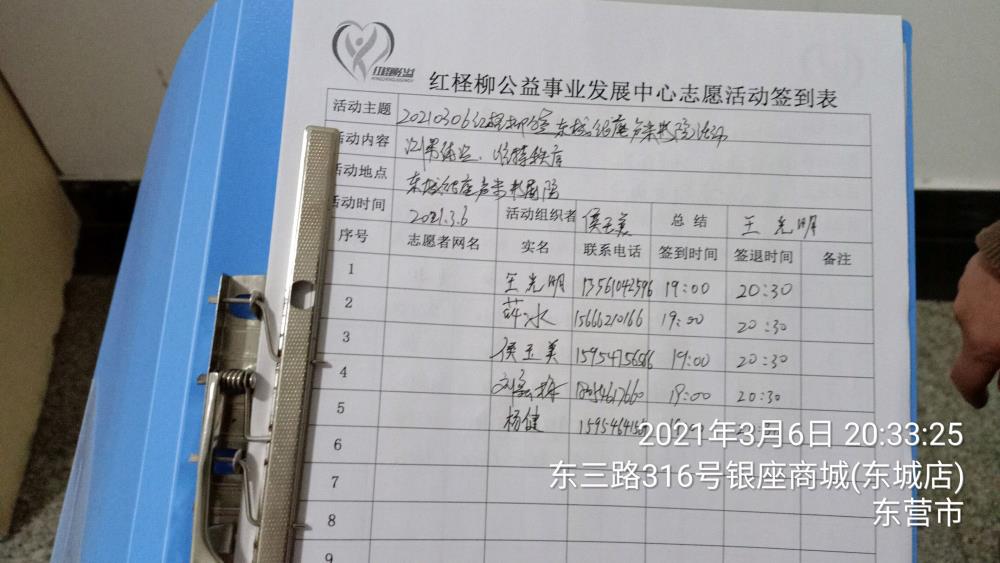 红柽柳公益
红柽柳公益事业发展中心志愿活动签到表
活动主题 20210306红柽柳 东城银座声来
活动内容
活动地点 东城银座声来书剧院
活动时间 2021.3.6 活动组织者 侯玉美 总结 王光明
序号 志愿者网名 实名 联系电话 签到时间 签退时间 备注
1 王光明 13561042596 19:00 20:30
2 薛冰 15666210166 19:00 20:30
3 侯玉美 19:00 20:30
4 19:00 20:30
5 杨健
6
7
8
9
2021年3月6日 20:33:25
东三路316号银座商城(东城店)
东营市